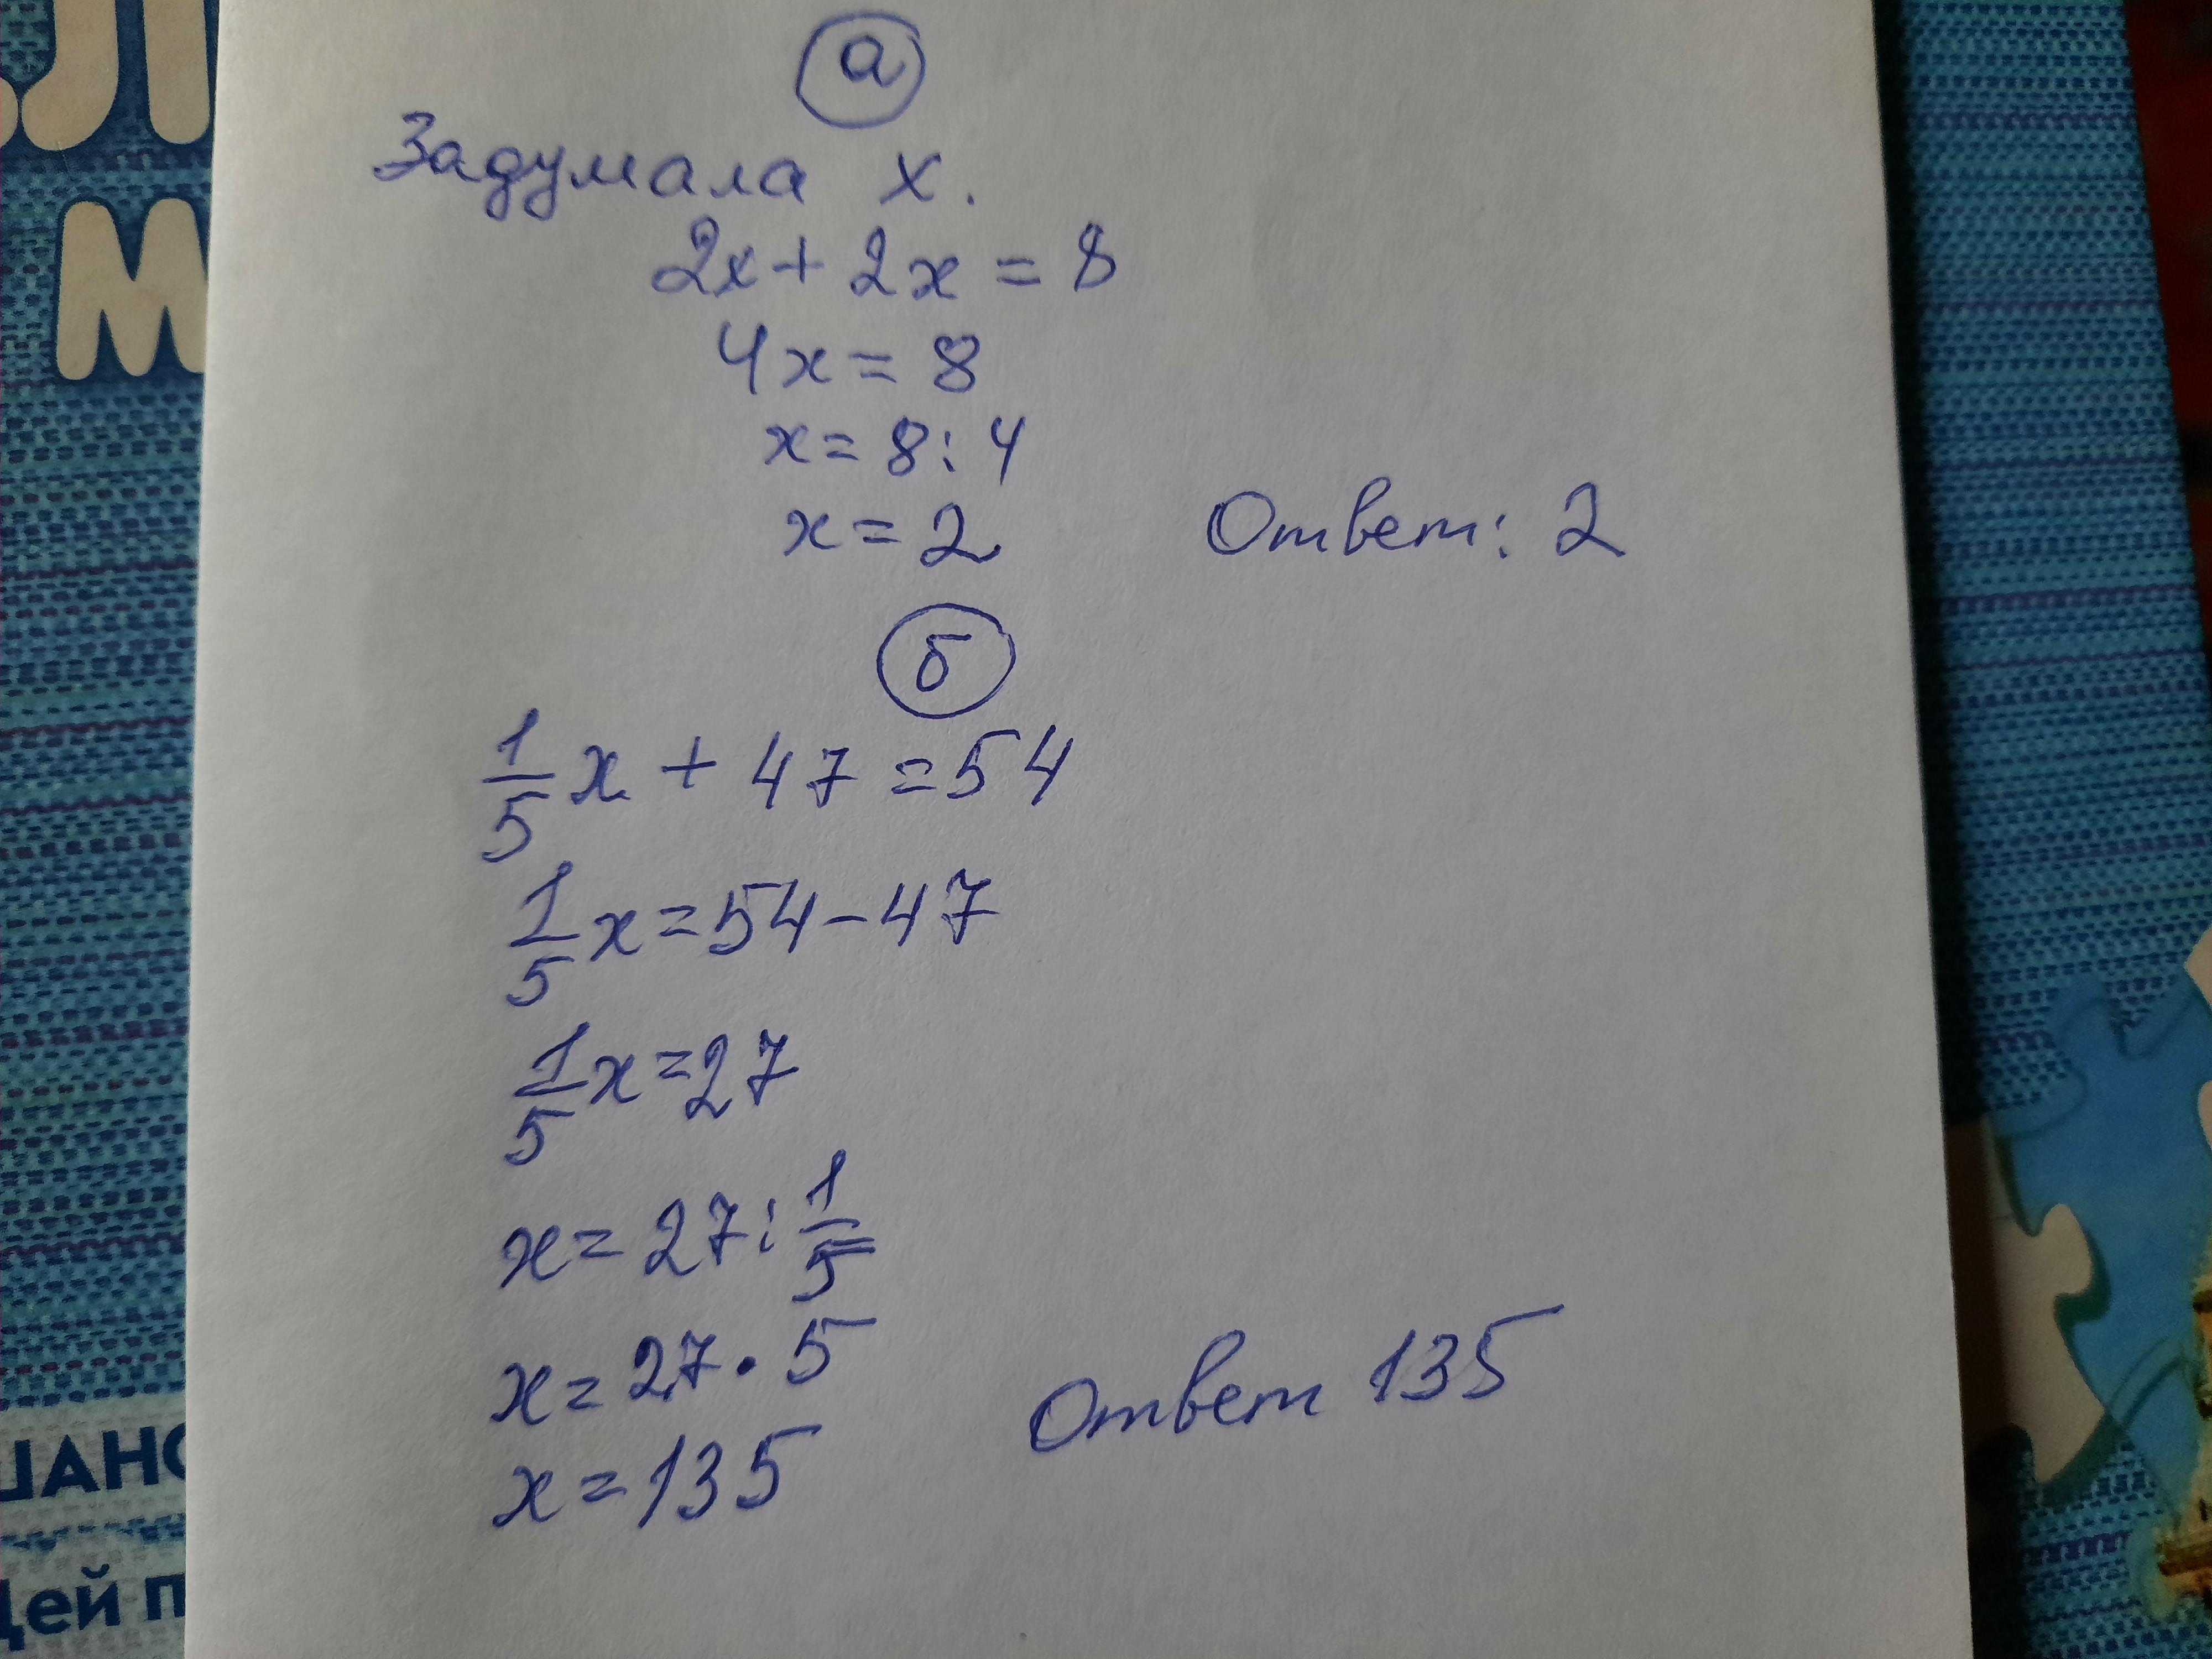 а
Задумала х.
2x + 2x = 8
4x = 8
x = 8 : 4
x = 2
Ответ: 2
б
1/5 x + 47 = 54
1/5 x = 54 - 47
1/5 x = 27
x = 27 : 1/5
x = 27 · 5
x = 135
Ответ 135
М
ей п